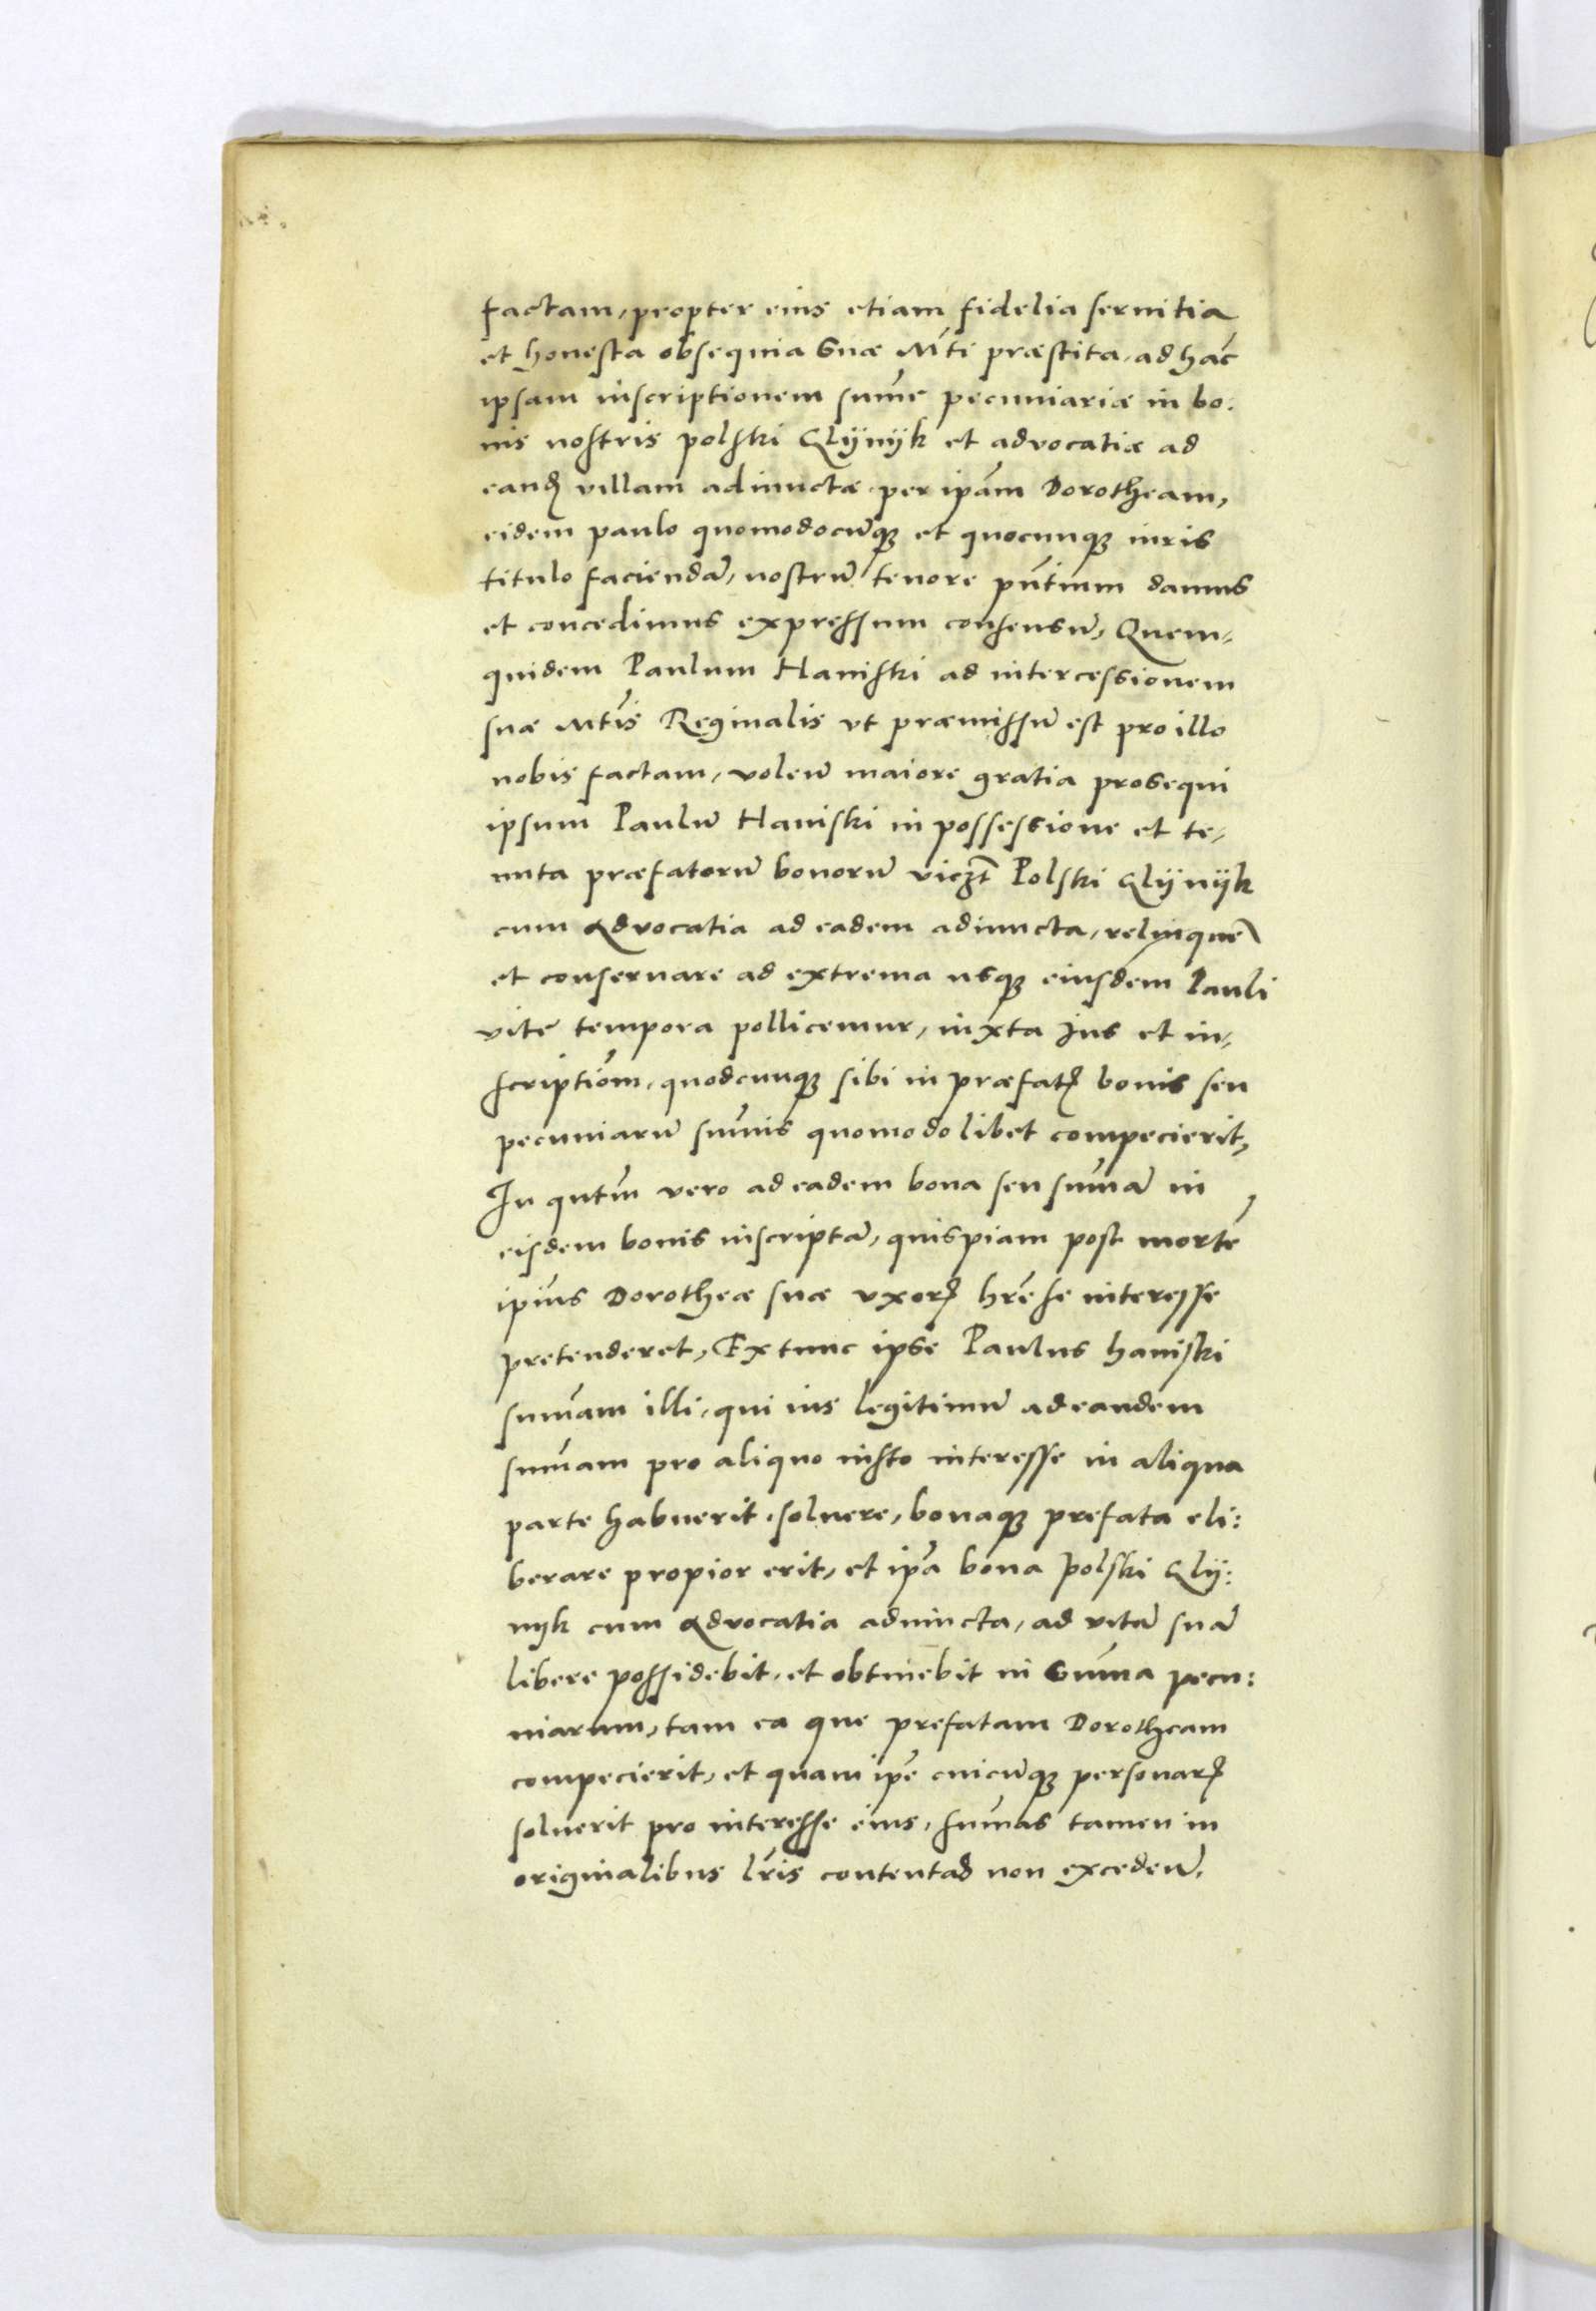 factam, propter eius etiam fidelia seruitia
et honesta obsequia suæ Mti præstita, ad hāc
ipsam inscriptionem sum̄e pecuniariæ in bo:
nis nostris polski Glÿnÿk et advocatiæ ad
eandꝫ villam adiunctæ per ipām Dorotheam,
eidem paulo quomodocūqꝫ et quocunqꝫ iuris
titulo faciendā, nostrū tenore pn̄tium damus
et concedimus expressum consensū, Quem-
quidem Paulum Haniski ad intercessionem
suæ Mtis Reginalis vt præmissū est pro illo
nobis factam, volen̄ maiore gratia prosequi
ipsum Paulū Haniski in possessione et te-
nuta præfatorū bonorū viczt Polski Glÿnÿk
cum Advocatia ad eadem adiuncta, relinquē
et conseruare ad extrema usqꝫ eiusdem Pauli
vite tempora pollicemur, iuxta Jus et in-
scriptiōm, quodcunqꝫ sibi in præfatꝫ bonis seu
pecuniarū sum̄is quomodolibet compecierit,
In qn̄tm vero ad eadem bona seu sum̄ā in
eisdem bonis inscriptā, quispiam post mortē
ipīus Dorotheæ suæ vxorꝫ hr̄e se interesse
pretenderet, Extunc ipse Paulus haniski
sum̄am illi, qui ius legitimū ad eandem
sum̄am pro aliquo iusto interesse in aliqua
parte habuerit soluere, bonaqꝫ prefata eli:
berare propior erit, et ipā bona Polski Glÿ:
nÿk cum Advocatia adiuncta, ad vitā suā
libere possidebit, et obtinebit in sum̄a pecu:
niarum, tam ea que prefatam Dorotheam
compecierit, et quam ipē cuicūqꝫ personarꝫ
soluerit pro interesse eius, sum̄as tamen in
originalibus lr̄is contentas non excedeñ.